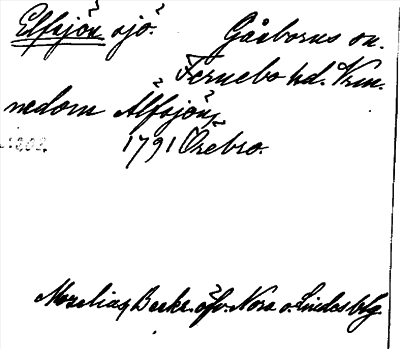 Elfsjön sjö. Gåsborns sn.
Fernebo hd. Vrm.
nedom Älfsjön,
1791 Örebro.
Moselius Beskr. öfv. Nora o. Lindes bslg